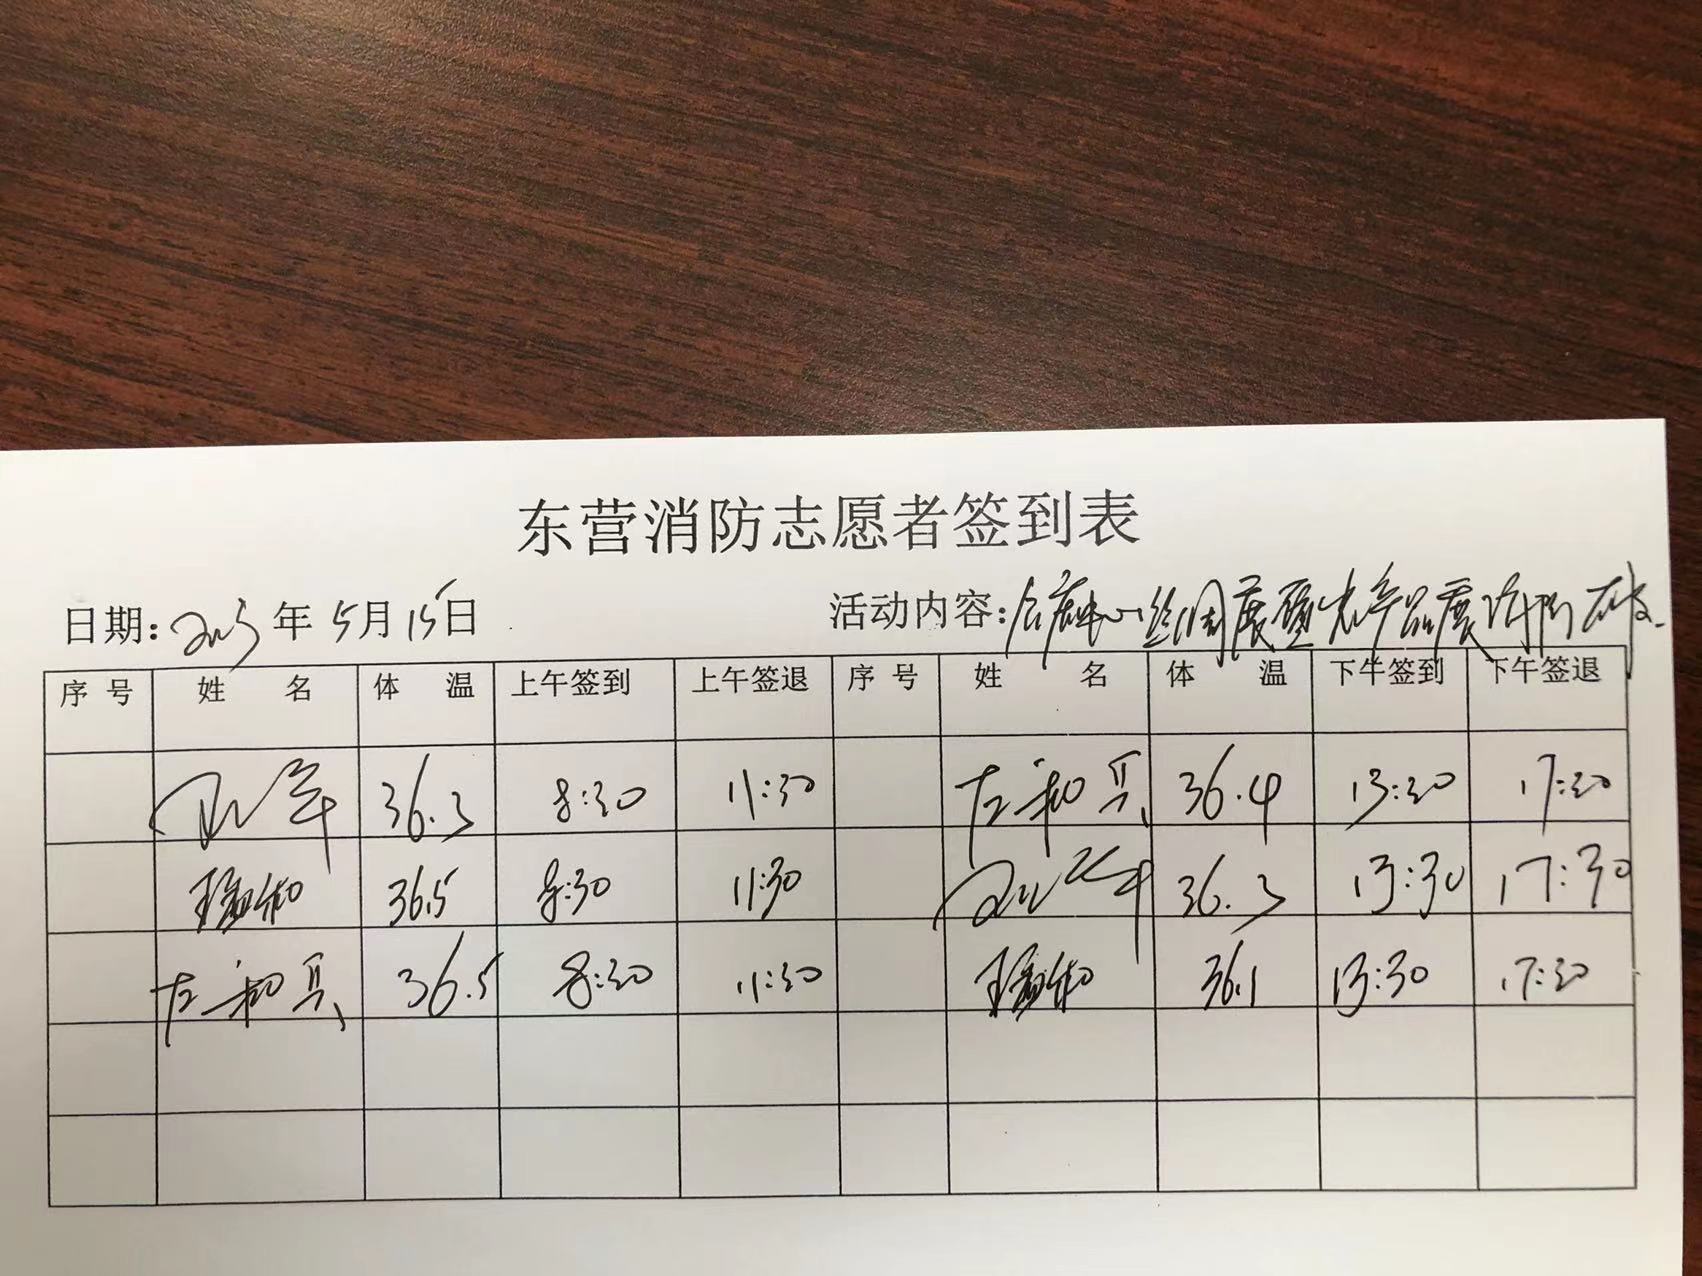 东营消防志愿者签到表
日期: 2023年5月15日 活动内容: 展暨 产品展
序号 姓名 体温 上午签到 上午签退 序号 姓名 体温 下午签到 下午签退
36.3 8:30 11:30 左和兵 36.4 13:30 17:30
36.5 8:30 11:30 36.3 13:30 17:30
左和兵 36.5 8:30 11:30 36.1 13:30 17:30